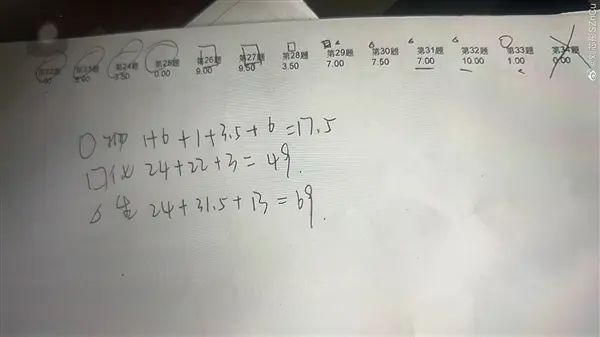 第24题 第25题 第26题 第27题 第28题 第29题 第30题 第31题 第32题 第33题 第34题
3.50 0.00 9.00 9.50 3.50 7.00 7.50 7.00 10.00 1.00 0.00
1+6+1+3.5+6=17.5
24+22+3=49
生 24+31.5+13=69